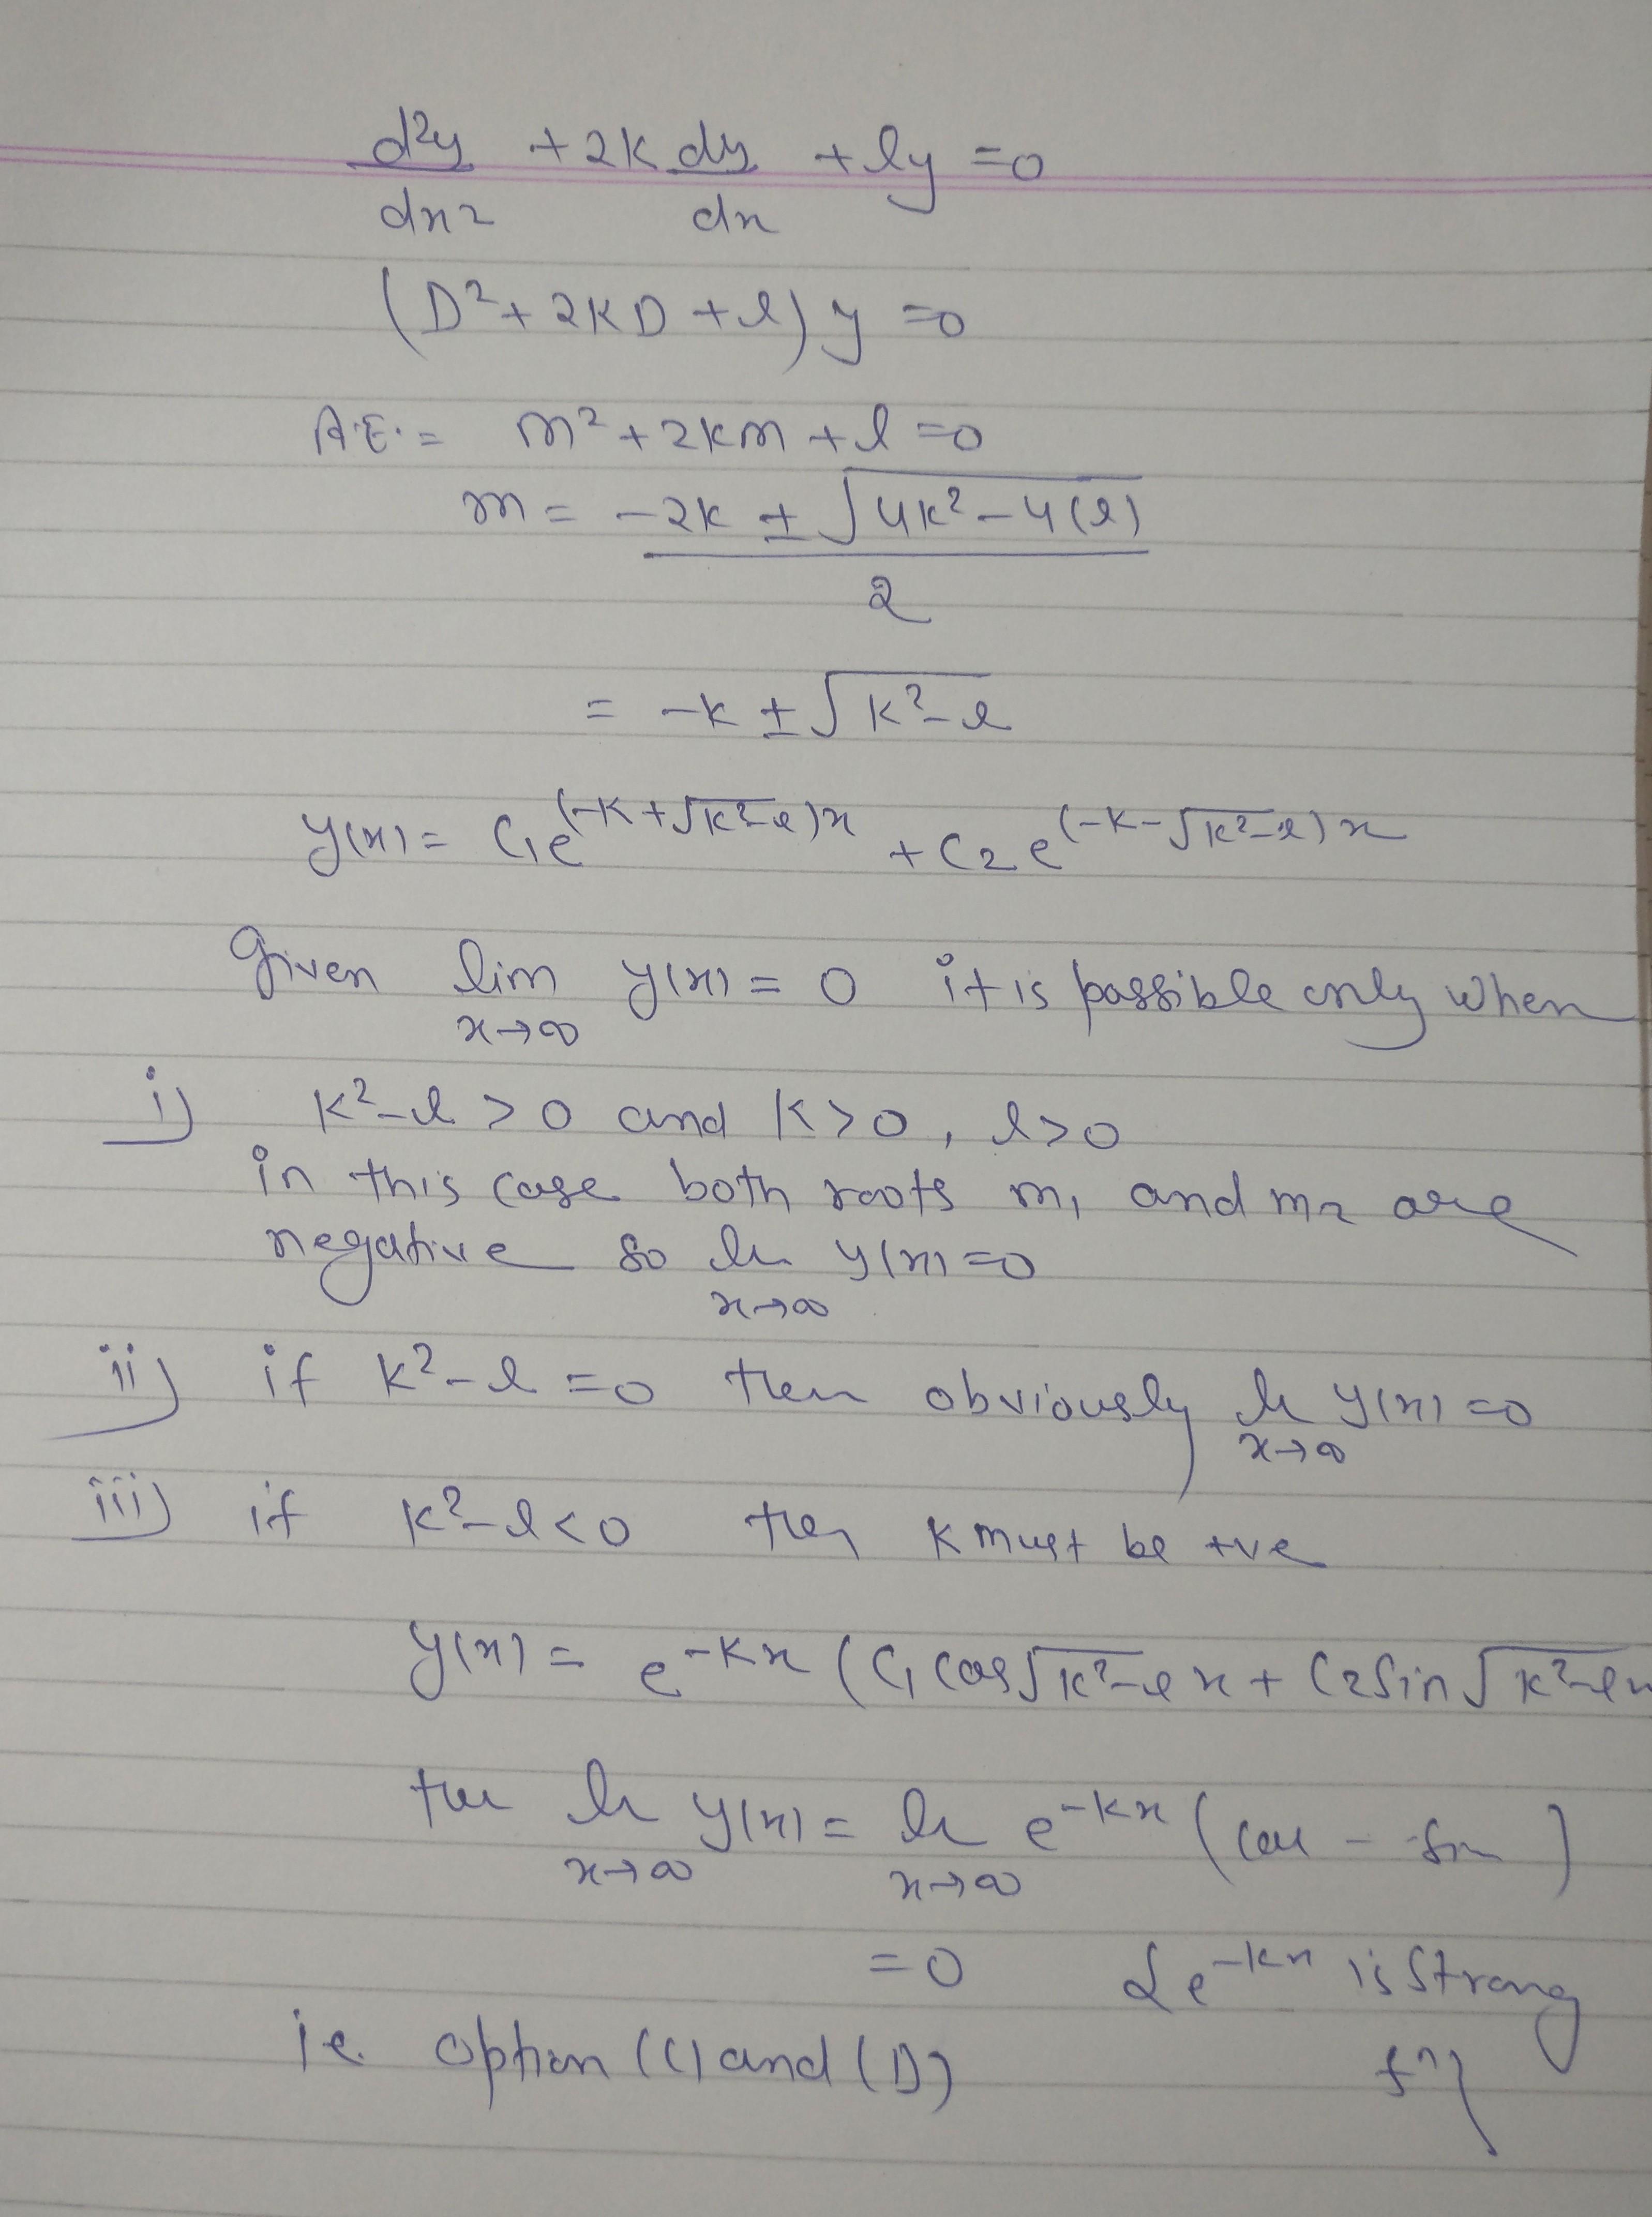 d²y/dx² + 2k dy/dx + ly = 0
(D² + 2kD + l) y = 0
A.E. = m² + 2km + l = 0
m = -2k ± √4k² - 4(l) / 2
= -k ± √k² - l
y(x) = C₁e^(-k + √k² - l)x + C₂e^(-k - √k² - l)x
Given lim x→∞ y(x) = 0 it is possible only when
i) k² - l > 0 and k > 0, l > 0
in this case both roots m₁ and m₂ are
negative so lt x→∞ y(x) = 0
ii) if k² - l = 0 then obviously lt x→∞ y(x) = 0
iii) if k² - l < 0 then k must be +ve
y(x) = e^-kx (C₁ cos √k² - l x + C₂ sin √k² - l x
the lt x→∞ y(x) = lt x→∞ e^-kx (cos - sin )
= 0 {e^-kx is strong
fn}
ie. option (C) and (D)